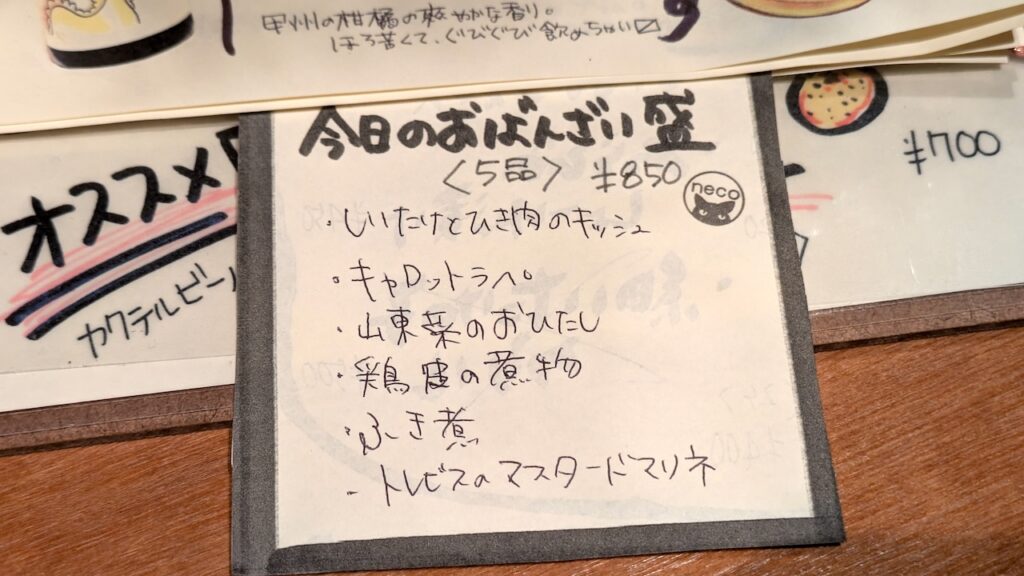 甲州の柑橘の爽やかな香り。
ほろ苦くて、ぐびぐび飲めちゃい〼
オススメ
カクテルビール
¥700
今日のおばんざい盛
〈5品〉 ¥850
neco
・しいたけとひき肉のキッシュ
・キャロットラペ
・山東菜のおひたし
・鶏皮の煮物
・ふき煮
・トレビスのマスタードマリネ